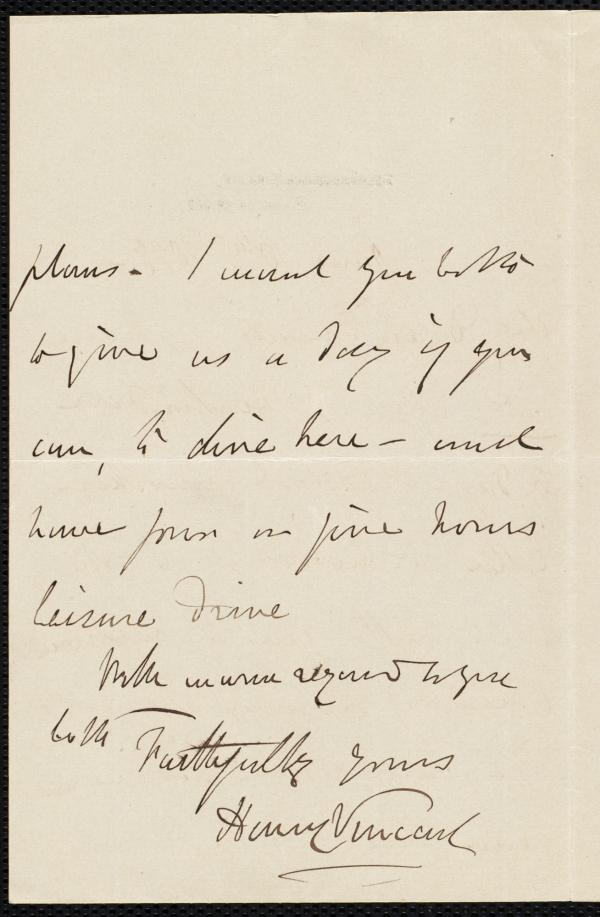 plans. I want you both
to give us a day if you
can, to dine here – and
have four or five hours
leisure time
With warm regard to you
both Faithfully yours
Henry Vincent